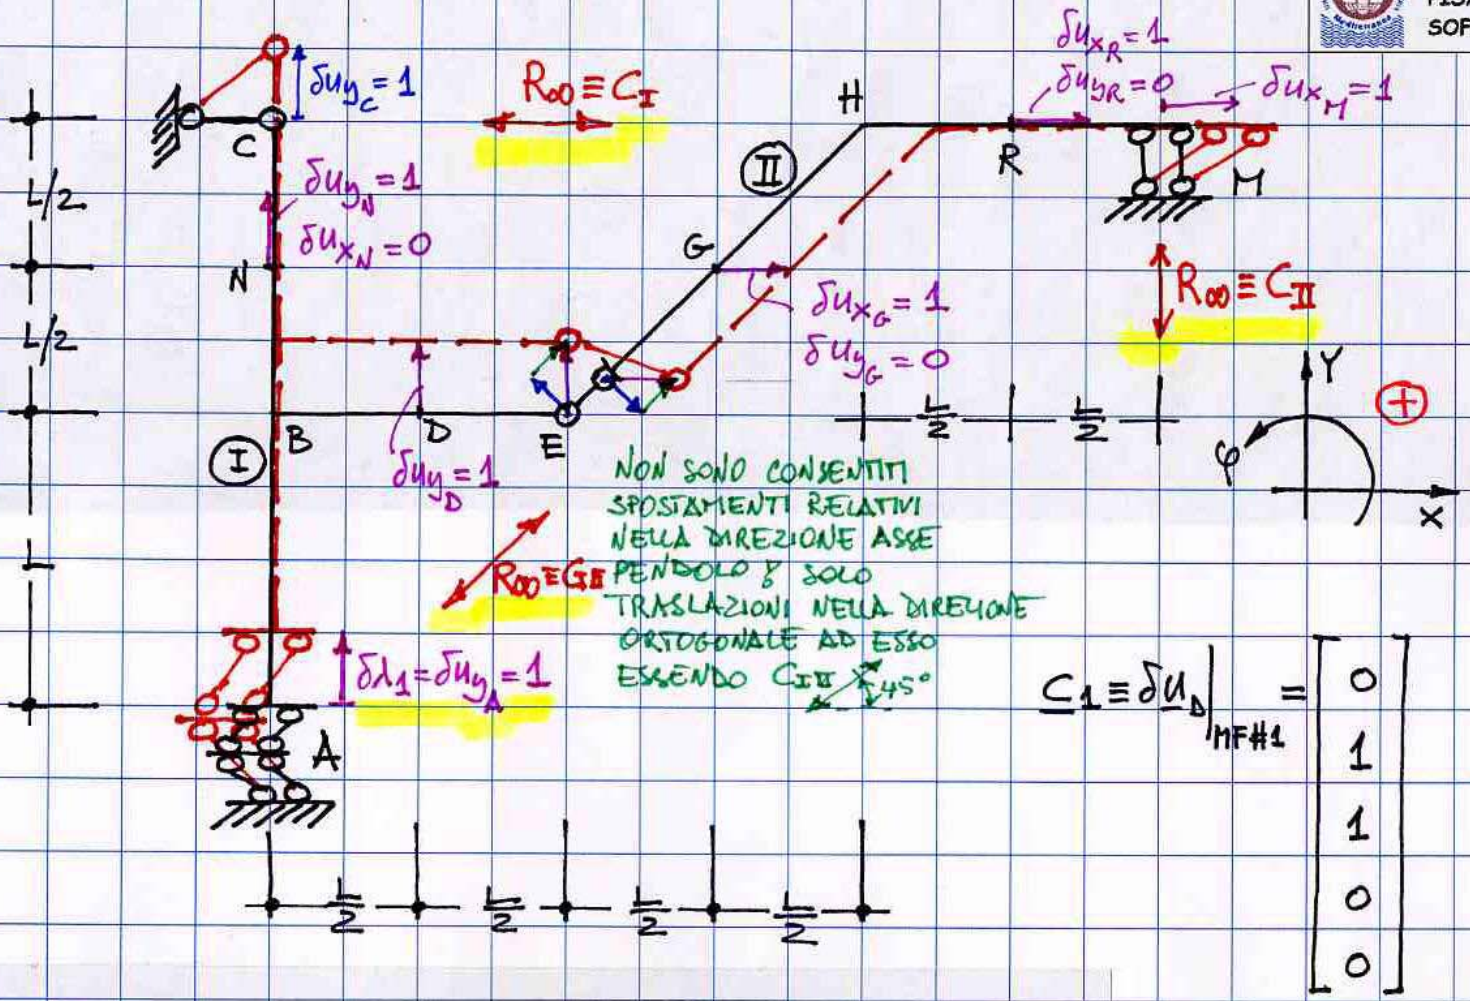 Mediterranea
SOF
δu_xR = 1
δu_yR = 0
δu_xM = 1
δu_yC = 1
R∞ ≡ C_I
H
C
II
R
M
L/2
δu_yN = 1
δu_xN = 0
N
G
R∞ ≡ C_II
δu_xG = 1
δu_yG = 0
L/2
Y
+
L/2
L/2
φ
X
B
D
E
I
δu_yD = 1
NON SONO CONSENTITI
SPOSTAMENTI RELATIVI
NELLA DIREZIONE ASSE
PENDOLO & SOLO
TRASLAZIONI NELLA DIREZIONE
ORTOGONALE AD ESSO
ESSENDO C_I II
45°
L
δλ1 = δu_yA = 1
A
C1 ≡ δu_D | MF#1 =
0
1
1
0
0
L/2
L/2
L/2
L/2